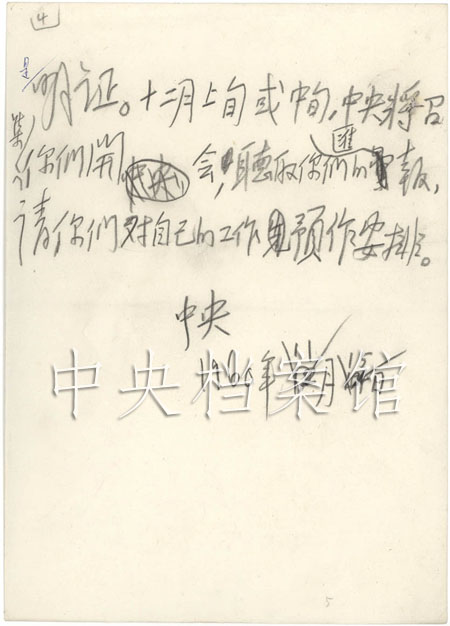 4
是
明证。十二月上旬或中旬，中央将召
集
你们開会，聽取你们的匯報，
请你们对自己的工作预作安排。
中央
年 月
中央档案馆
5